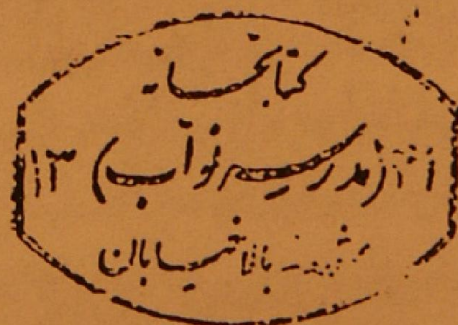 کتابخانه
(مدرسه نواب) ۱۳
مشهد بالا خیابان